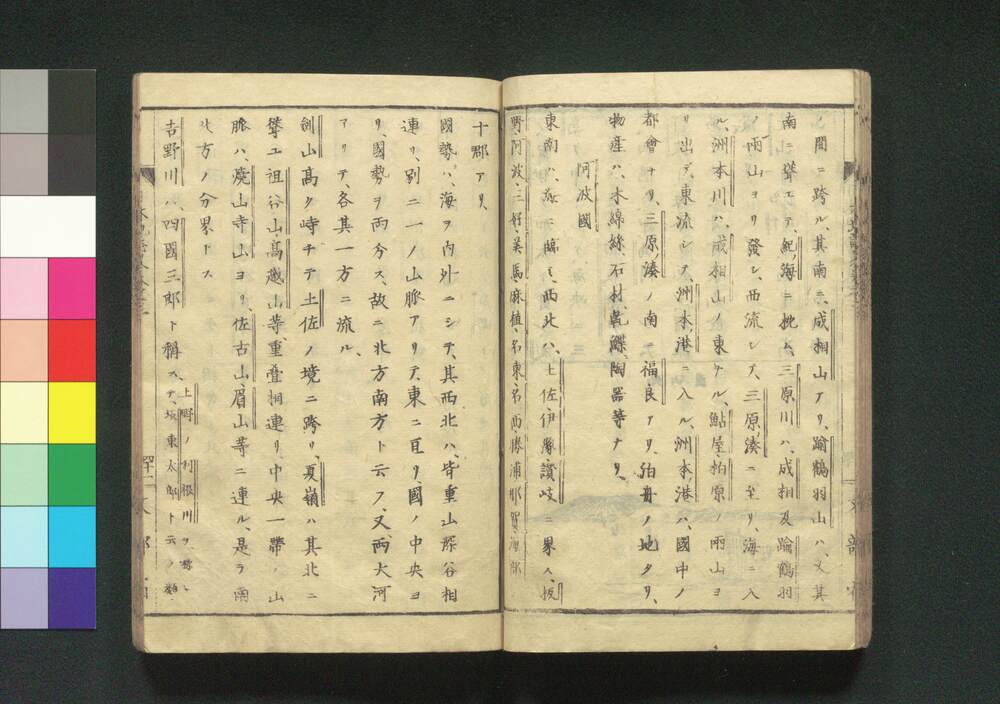 間ニ跨ル、其南ニ、成相山アリ、踰鶴羽山ハ、又其
南ニ聳エテ、紀海ニ枕ム、三原川ハ、成相及踰鶴羽
ノ兩山ヨリ發シ、西流シテ、三原湊ニ至リ、海ニ入
ル、洲本川ハ、成相山ノ東ナル、鮎屋、柏原ノ兩山ヨ
リ出デ、東流シテ、洲本港ニ入ル、洲本港ハ、國中ノ
都會ナリ、三原湊ノ南ニ、福良アリ、泊舟ノ地タリ、
物產ハ、木綿絲、石材、乾鰈、陶器等ナリ、
阿波國
東南ハ、海ニ臨ミ、西北ハ、土佐伊豫讚岐ニ界ス、板
野、阿波、三好、美馬、麻植、名東、名西、勝浦、那賀、海部
十郡アリ、
國勢ハ、海ヲ內外ニシテ、其西北ハ、皆重山深谷相
連リ、別ニ一ノ山脈アリテ、東ニ亘リ、國ノ中央ヨ
リ、國勢ヲ兩分ス、故ニ北方南方ト云フ、又、兩大河
アリテ、各其一方ニ流ル、
劍山高ク峙チテ、土佐ノ境ニ跨リ、夏嶺ハ其北ニ
聳エ、祖谷山、高越山等、重疊相連リ、中央一帶ノ山
脈ハ、燒山寺山ヨリ、佐古山、眉山等ニ連ル、是ヲ南
北方ノ分界トス
吉野川ハ、四國三郎ト稱ス、上野ノ利根川ヲ
坂東太郎ト云ノ類